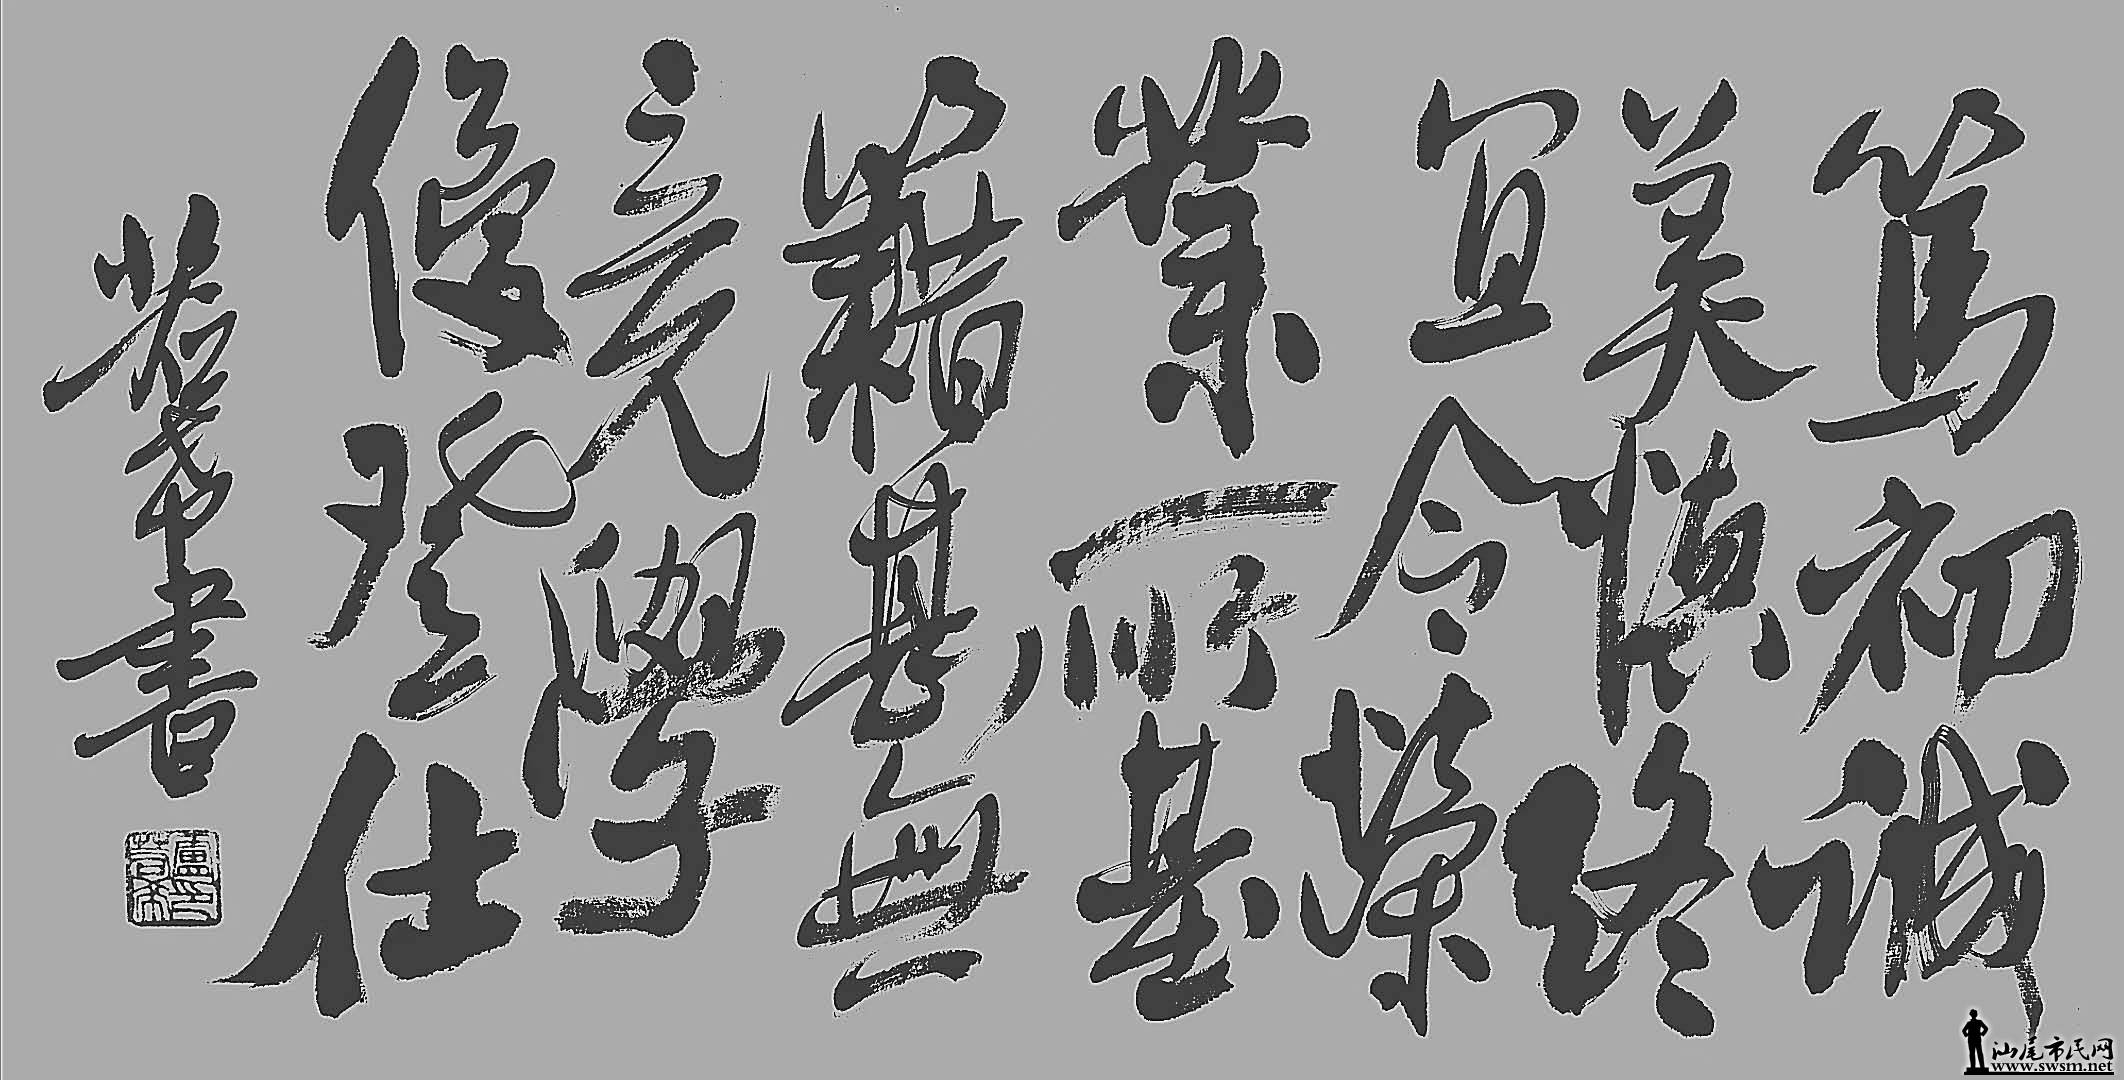 篤初誠
美慎終
宜令榮
業所基
籍甚無
竟學
優登仕
若希書
汕尾市民网
www.swsm.net